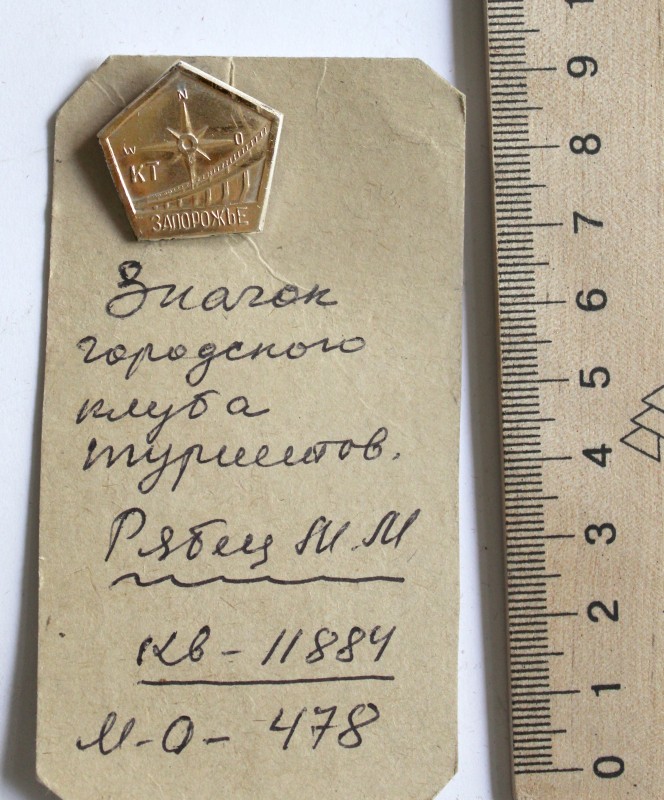 N
W
O
КТ
ЗАПОРОЖЬЕ
Значок
городского
клуба
туристов.
Рябец М.М
кв - 11884
М-О- 478
9
8
7
6
5
4
3
2
1
0